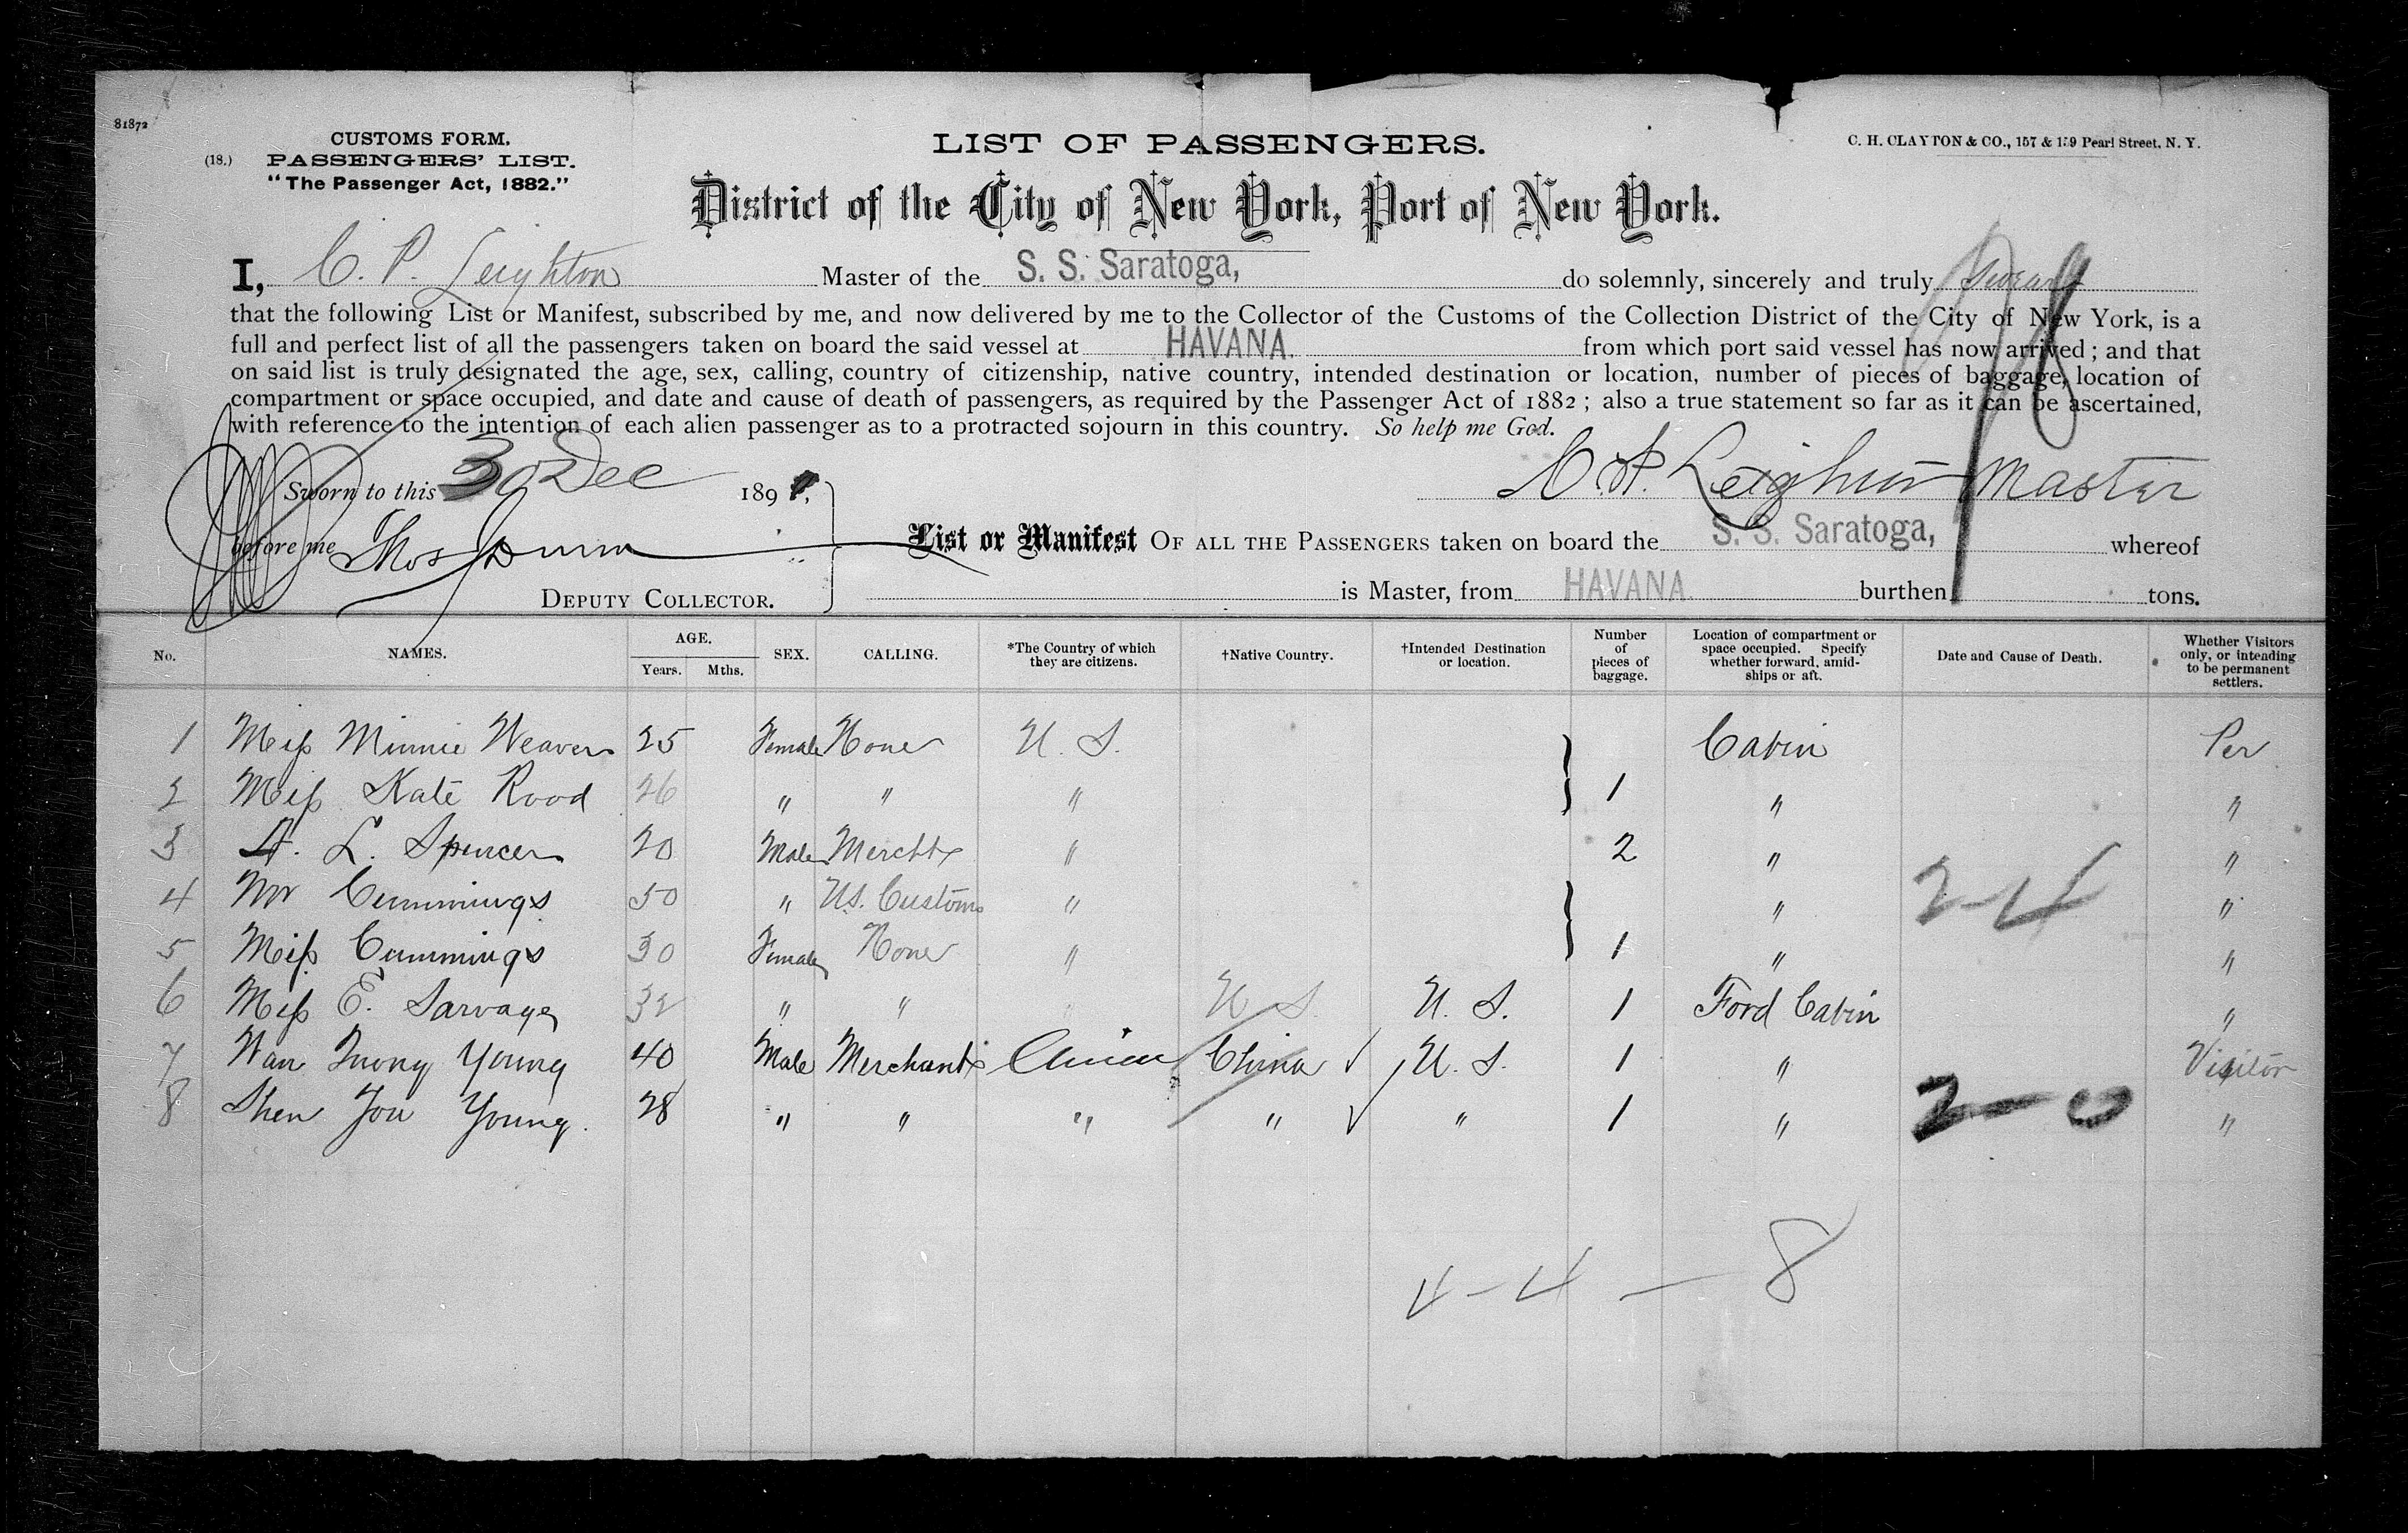 81872
CUSTOMS FORM.
(18.) PASSENGERS' LIST.
"The Passenger Act, 1882."
LIST OF PASSENGERS.
C. H. CLAYTON & CO., 157 & 159 Pearl Street, N. Y.
District of the City of New York, Port of New York.
I, C. P. Leighton Master of the S. S. Saratoga, do solemnly, sincerely and truly Swear
that the following List or Manifest, subscribed by me, and now delivered by me to the Collector of the Customs of the Collection District of the City of New York, is a
full and perfect list of all the passengers taken on board the said vessel at HAVANA. from which port said vessel has now arrived; and that
on said list is truly designated the age, sex, calling, country of citizenship, native country, intended destination or location, number of pieces of baggage, location of
compartment or space occupied, and date and cause of death of passengers, as required by the Passenger Act of 1882; also a true statement so far as it can be ascertained,
with reference to the intention of each alien passenger as to a protracted sojourn in this country. So help me God.
Sworn to this 30 Dec 189
C. P. Leighton Master
before me Thos Dunn
List or Manifest OF ALL THE PASSENGERS taken on board the S. S. Saratoga, whereof
DEPUTY COLLECTOR.
is Master, from HAVANA. burthen tons.
No. NAMES. AGE. Years. Mths. SEX. CALLING. *The Country of which they are citizens. †Native Country. †Intended Destination or location. Number of pieces of baggage. Location of compartment or space occupied. Specify whether forward, amidships or aft. Date and Cause of Death. Whether Visitors only, or intending to be permanent settlers.
1 Miss Minnie Weaver 25 Female None U. S. Cabin Per
2 Miss Kate Rood 26 " " " 1 " "
3 A. L. Spencer 20 Male Mercht " 2 " "
4 Mr Cummings 50 " U.S. Customs " " 2-4 "
5 Miss Cummings 30 Female None " 1 " "
6 Miss E. Sarvage 32 " " " U S. U. S. 1 Ford Cabin "
7 Wan Quong Young 40 Male Merchant China China U. S. 1 " Visitor
8 Shen Jou Young. 28 " " " " " 1 " 2-0 "
4-4-8